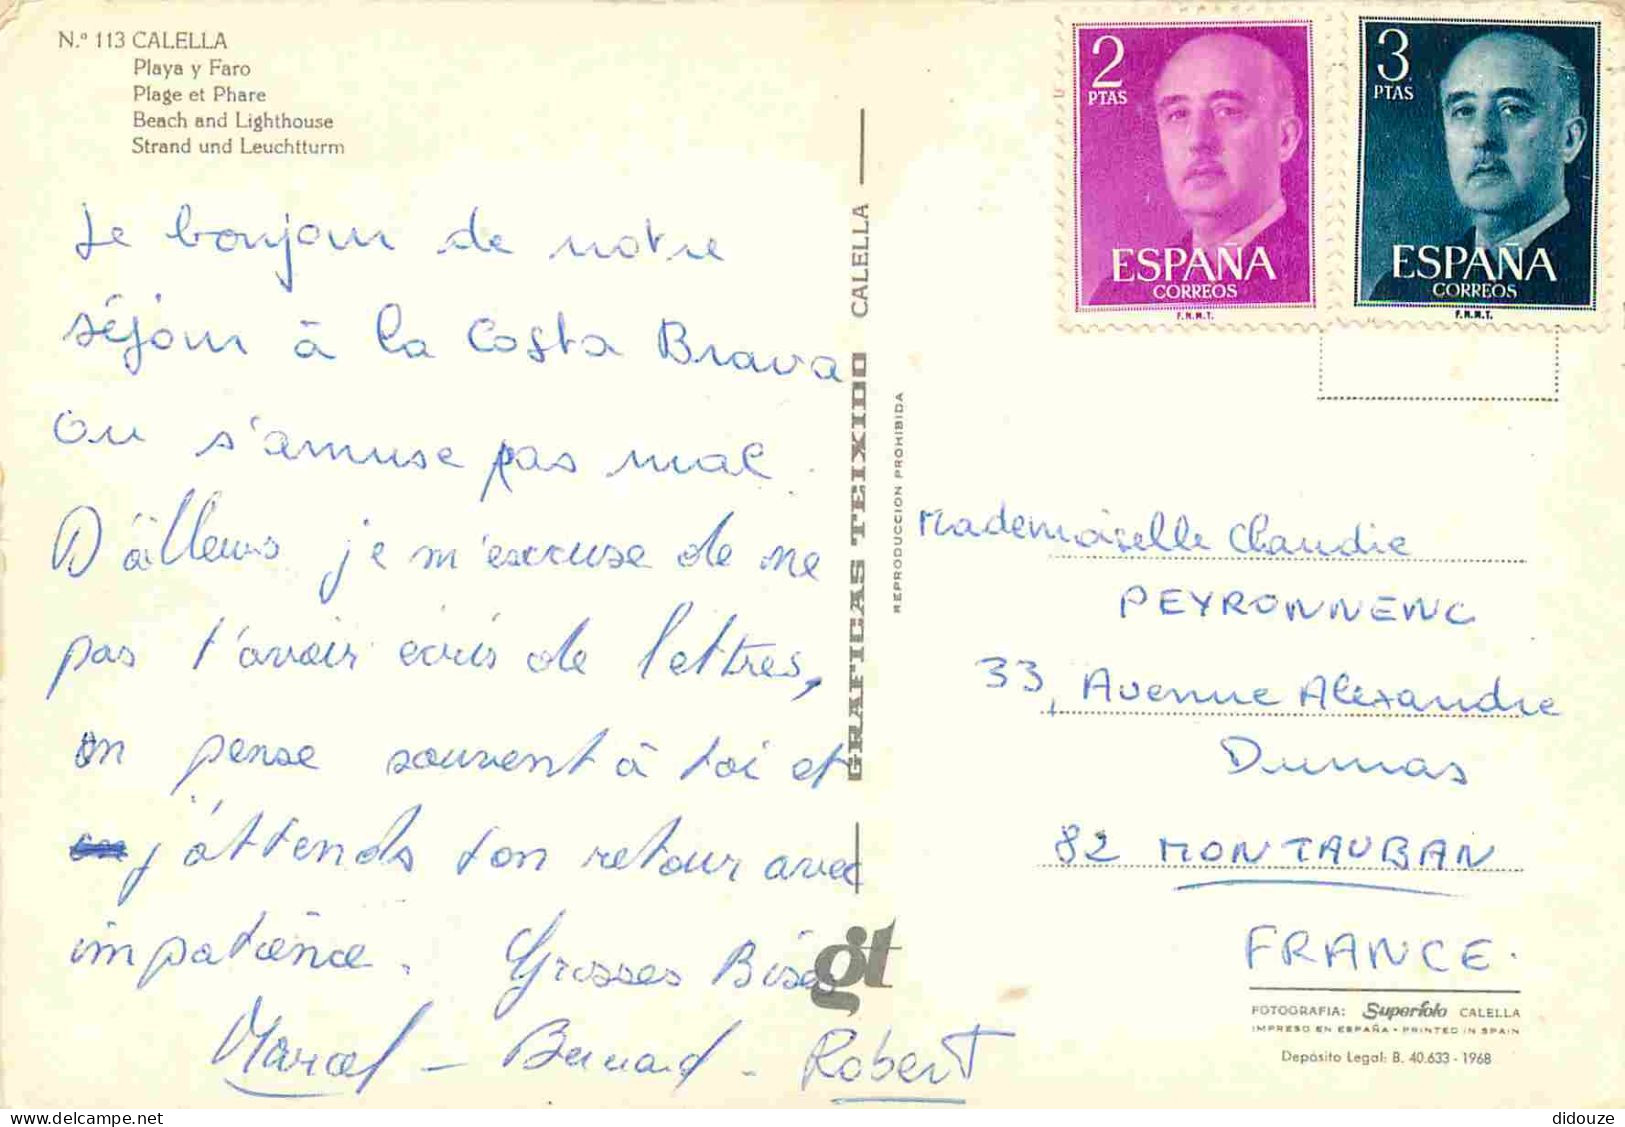 N.º 113 CALELLA
Playa y Faro
Plage et Phare
Beach and Lighthouse
Strand und Leuchtturm
Le bonjour de notre
séjour à la Costa Brava
on s'amuse pas mal.
D'ailleurs je m'excuse de ne
pas t'avoir écris de lettres,
on pense souvent à toi et
j'attends ton retour avec
impatience. Grosses Bises
Marcel - Bernard - Robert
CALELLA
GRAFICAS TEIXIDO
REPRODUCCION PROHIBIDA
gt
2
PTAS
ESPAÑA
CORREOS
F.N.M.T.
3
PTAS
ESPAÑA
CORREOS
F.N.M.T.
Mademoiselle Claudie
PEYRONNENC
33, Avenue Alexandre
Dumas
82 MONTAUBAN
FRANCE.
FOTOGRAFIA: Superfoto CALELLA
IMPRESO EN ESPAÑA - PRINTED IN SPAIN
Depósito Legal: B. 40.633 - 1968
didouze